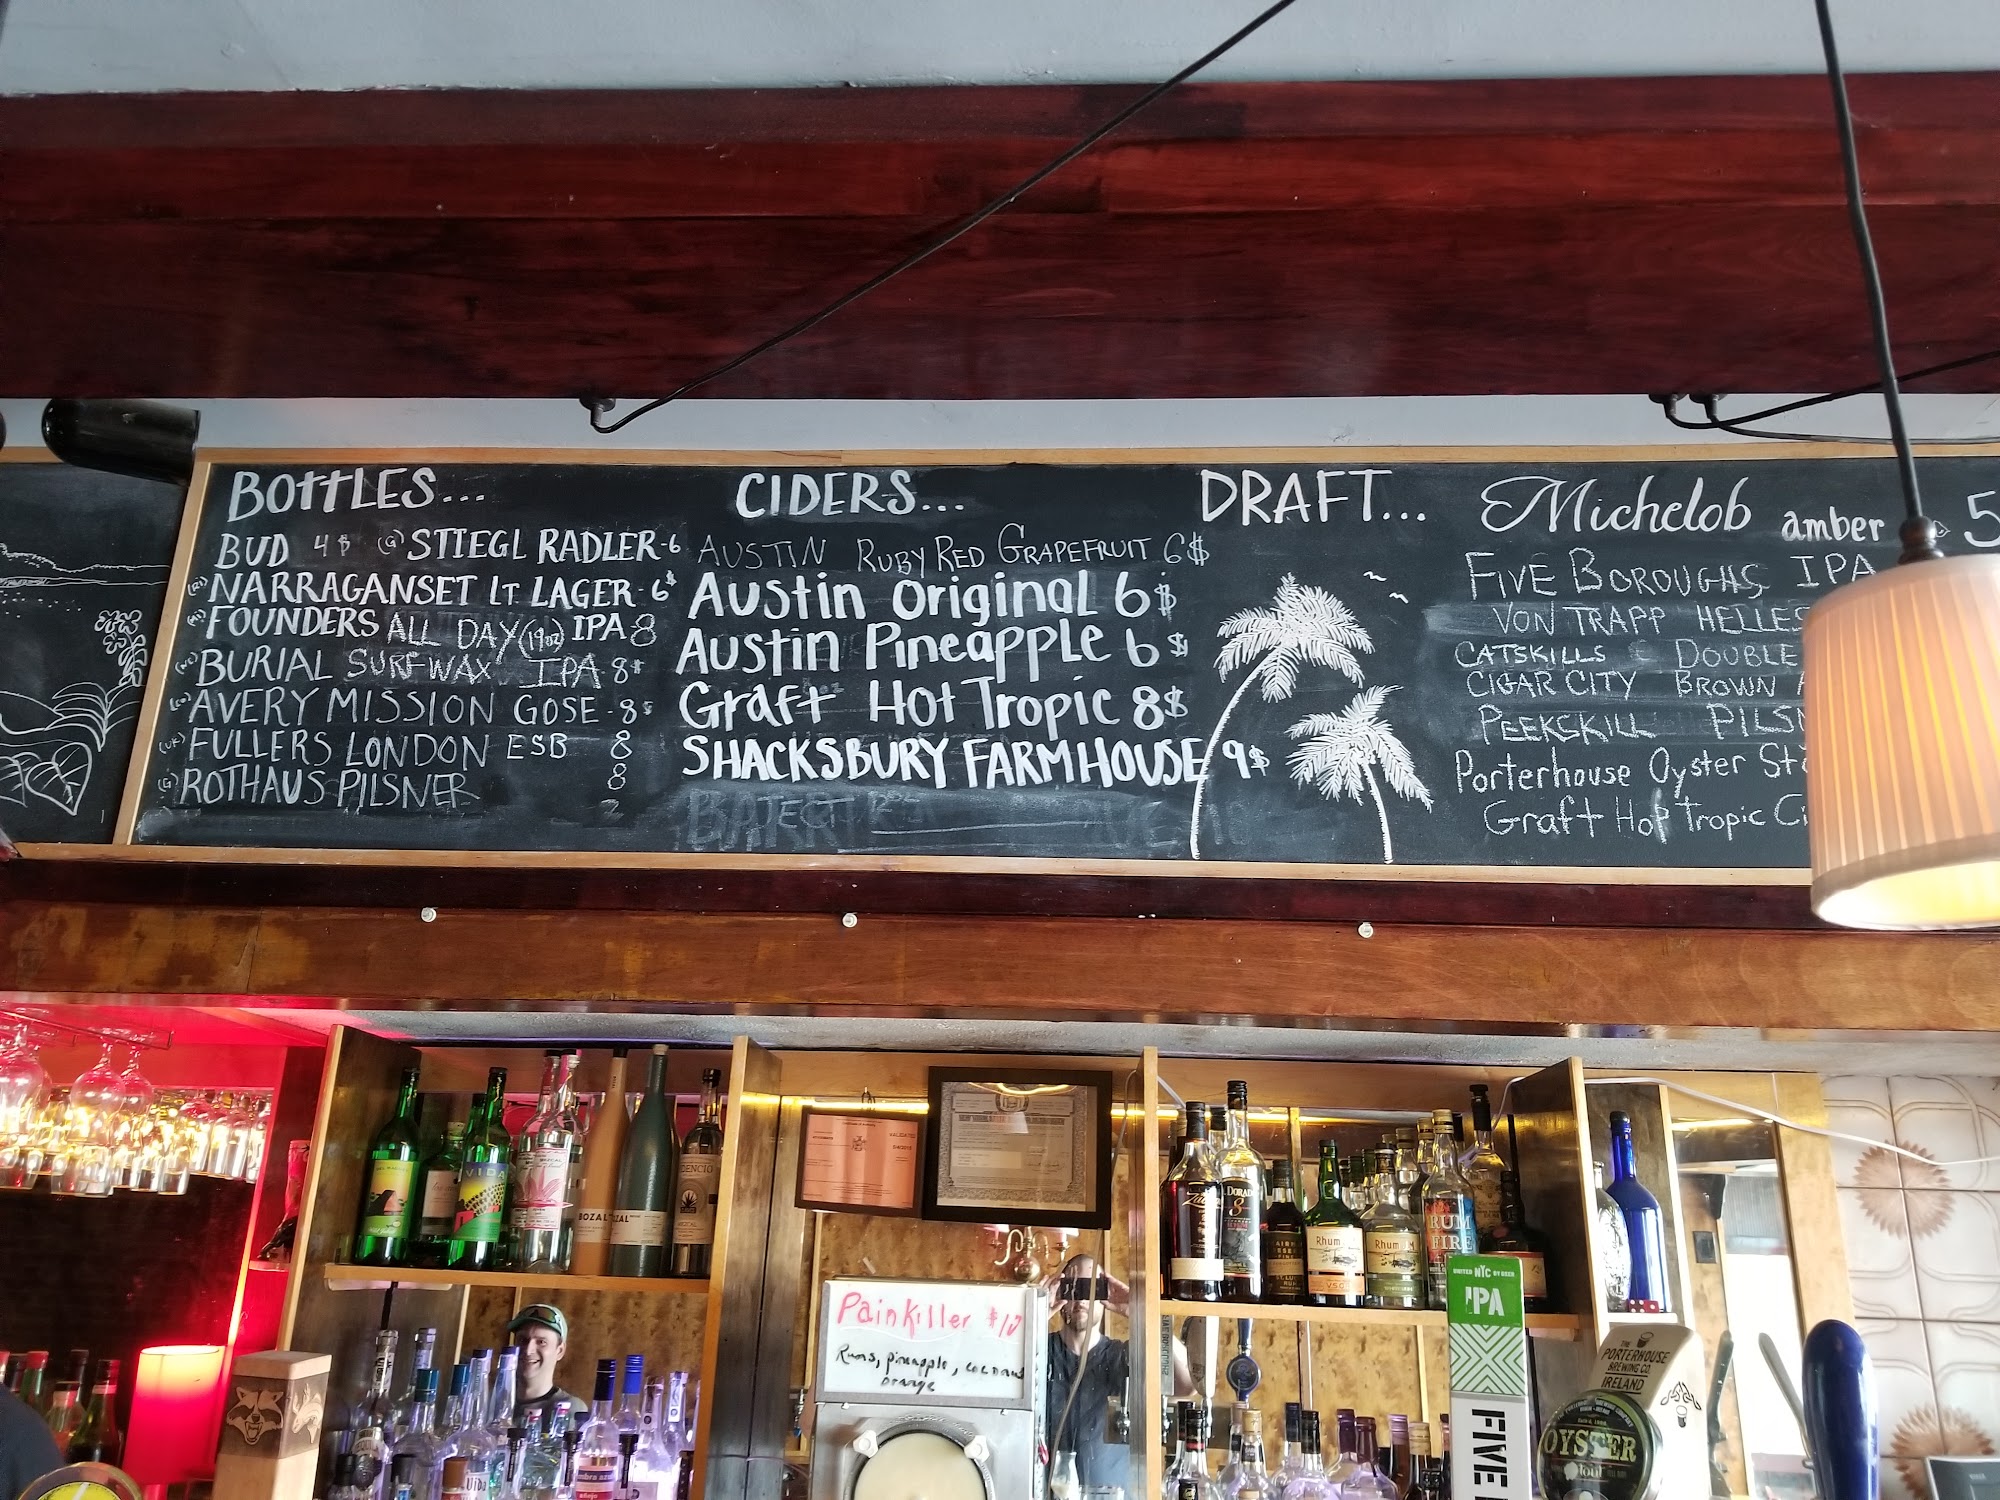 BOTTLES...
BUD 4$ (G) STIEGL RADLER-6
(RI) NARRAGANSET LT LAGER-6$
(MI) FOUNDERS ALL DAY (19oz) IPA 8
(NC) BURIAL SURFWAX IPA-8$
(CO) AVERY MISSION GOSE-8$
(UK) FULLERS LONDON ESB 8
(G) ROTHAUS PILSNER 8
CIDERS...
AUSTIN RUBY RED GRAPEFRUIT 6$
AUSTIN ORIGINAL 6$
AUSTIN PINEAPPLE 6$
Graft Hot Tropic 8$
SHACKSBURY FARMHOUSE 9$
PROJECT
DRAFT...
Michelob amber 5
FIVE BOROUGHS IPA
VON TRAPP HELLES
CATSKILLS DOUBLE
CIGAR CITY BROWN A
PEEKSKILL PILSN
Porterhouse Oyster Sto
Graft Hop Tropic Ci
VIDA
BOZAL
MEZCAL
VALIDATED
DORADO
8
Rhum
VSOP
Rhum
RUM
FIRE
PainKiller $10
Rums, pineapple, coconut
orange
UNITED NYC BY BEER
IPA
FIVE
THE
PORTERHOUSE
BREWING CO.
IRELAND
OYSTER